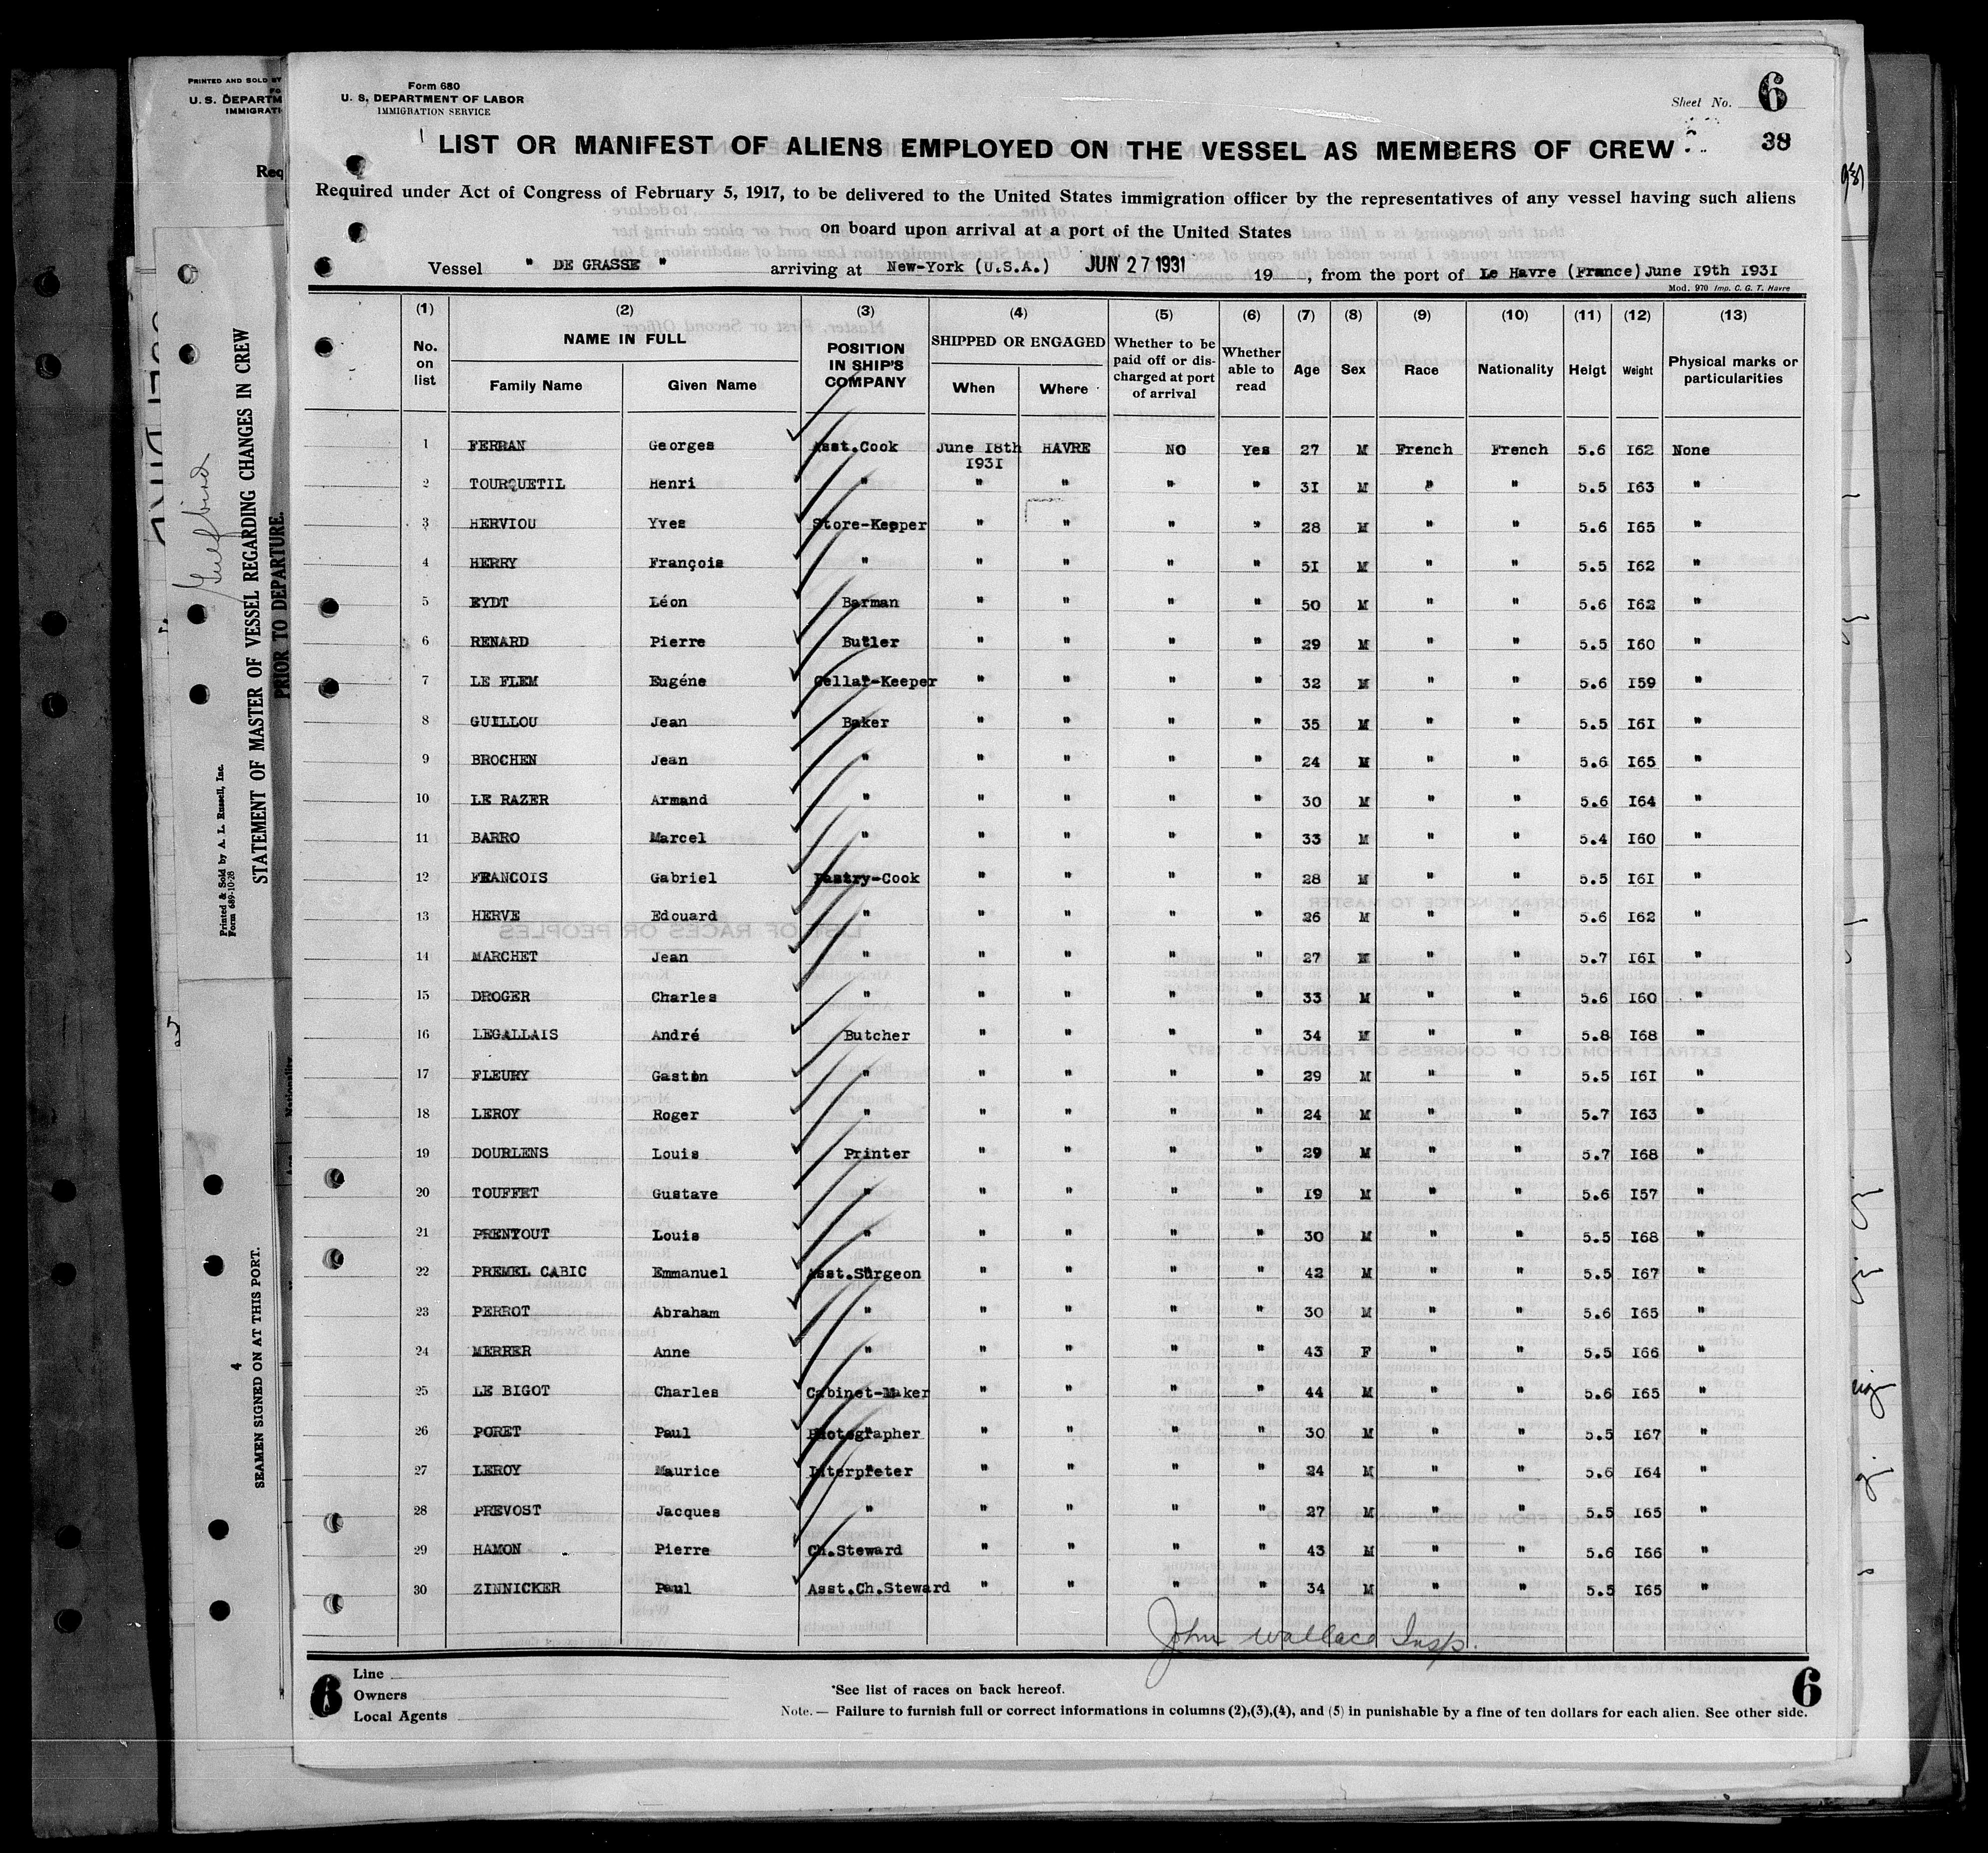 PRINTED AND SOLD BY
U. S. DEPARTM
IMMIGRATI
Req
STATEMENT OF MASTER OF VESSEL REGARDING CHANGES IN CREW
PRIOR TO DEPARTURE.
Printed & Sold by A. L. Russell, Inc.
Form 689-10-28
4
SEAMEN SIGNED ON AT THIS PORT.
Form 680
U. S. DEPARTMENT OF LABOR
IMMIGRATION SERVICE
Sheet No. 6
38
LIST OR MANIFEST OF ALIENS EMPLOYED ON THE VESSEL AS MEMBERS OF CREW
Required under Act of Congress of February 5, 1917, to be delivered to the United States immigration officer by the representatives of any vessel having such aliens
on board upon arrival at a port of the United States
Vessel " DE GRASSE " arriving at New-York (U.S.A.) JUN 27 1931 19 , from the port of Le Havre (France) June I9th I93I
Mod. 970 Imp. C. G. T. Havre
(1) (2) (3) (4) (5) (6) (7) (8) (9) (10) (11) (12) (13)
No. on list NAME IN FULL Family Name Given Name POSITION IN SHIP'S COMPANY SHIPPED OR ENGAGED When Where Whether to be paid off or discharged at port of arrival Whether able to read Age Sex Race Nationality Heigt Weight Physical marks or particularities
1 FERRAN Georges Asst.Cook June I8th I93I HAVRE NO Yes 27 M French French 5.6 I62 None
2 TOURQUETIL Henri " " " " " 3I M " " 5.5 I63 "
3 HERVIOU Yves Store-Keeper " " " " 28 M " " 5.6 I65 "
4 HERRY François " " " " " 5I M " " 5.5 I62 "
5 EYDT Léon Barman " " " " 50 M " " 5.6 I62 "
6 RENARD Pierre Butler " " " " 29 M " " 5.5 I60 "
7 LE FLEM Eugéne Cellar-Keeper " " " " 32 M " " 5.6 I59 "
8 GUILLOU Jean Baker " " " " 35 M " " 5.5 I6I "
9 BROCHEN Jean " " " " " 24 M " " 5.6 I65 "
10 LE RAZER Armand " " " " " 30 M " " 5.6 I64 "
11 BARRO Marcel " " " " " 33 M " " 5.4 I60 "
12 FRANCOIS Gabriel Pastry-Cook " " " " 28 M " " 5.5 I6I "
13 HERVE Edouard " " " " " 26 M " " 5.6 I62 "
14 MARCHET Jean " " " " " 27 M " " 5.7 I6I "
15 DROGER Charles " " " " " 33 M " " 5.6 I60 "
16 LEGALLAIS André Butcher " " " " 34 M " " 5.8 I68 "
17 FLEURY Gaston " " " " " 29 M " " 5.5 I6I "
18 LEROY Roger " " " " " 24 M " " 5.7 I63 "
19 DOURLENS Louis Printer " " " " 29 M " " 5.7 I68 "
20 TOUFFET Gustave " " " " " I9 M " " 5.6 I57 "
21 PRENTOUT Louis " " " " " 30 M " " 5.5 I68 "
22 PREMEL CABIC Emmanuel Asst.Surgeon " " " " 42 M " " 5.5 I67 "
23 PERROT Abraham " " " " " 30 M " " 5.6 I65 "
24 MERRER Anne " " " " " 43 F " " 5.5 I66 "
25 LE BIGOT Charles Cabinet-Maker " " " " 44 M " " 5.6 I65 "
26 PORET Paul Photographer " " " " 30 M " " 5.5 I67 "
27 LEROY Maurice Interpreter " " " " 24 M " " 5.6 I64 "
28 PREVOST Jacques " " " " " 27 M " " 5.5 I65 "
29 HAMON Pierre Ch.Steward " " " " 43 M " " 5.6 I66 "
30 ZINNICKER Paul Asst.Ch.Steward " " " " 34 M " " 5.5 I65 "
John Wallace Insp.
6 Line
Owners
Local Agents
*See list of races on back hereof.
Note. — Failure to furnish full or correct informations in columns (2),(3),(4), and (5) in punishable by a fine of ten dollars for each alien. See other side.
6